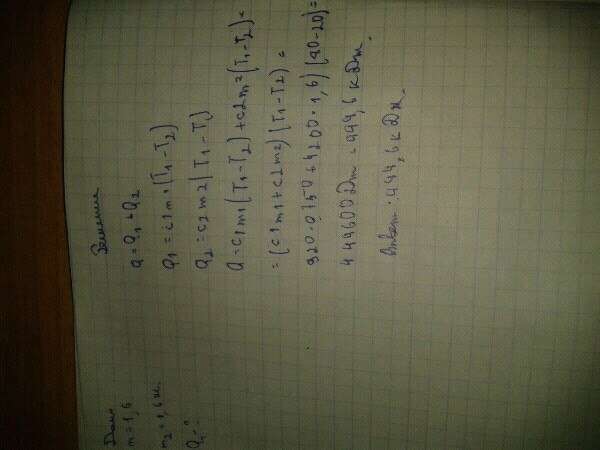 Дано
m=1,6
m2=1,6 кг
Q-?
Решение
Q=Q1+Q2
Q1=c1m1(T1-T2)
Q2=c2m2(T1-T2)
Q=c1m1(T1-T2)+c2m2(T1-T2)=
=(c1m1+c2m2)(T1-T2)=
920·0,750+4200·1,6)(80-20)=
444600Дж=444,6кДж.
Ответ:444,6кДж.